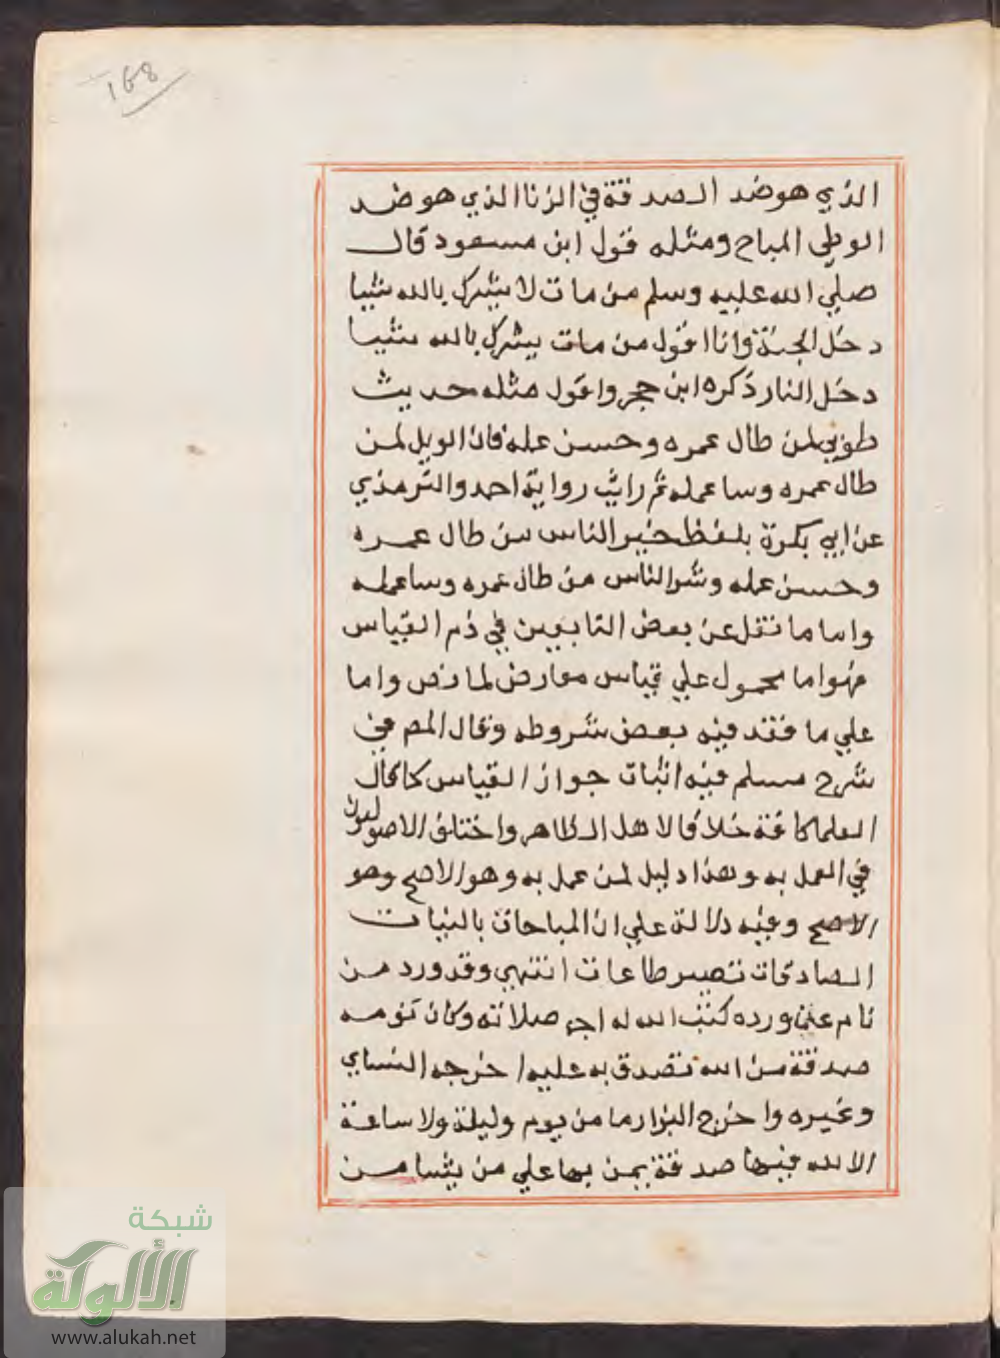 168
الذي هو ضد الصدقة في الزنا الذي هو ضد
الوطي المباح ومثله قول ابن مسعود قال
صلي الله عليه وسلم من مات لا يشرك بالله شيا
دخل الجنة وانا اقول من مات يشرك بالله شيا
دخل النار ذكره ابن حجر واقول مثله حديث
طوبي لمن طال عمره وحسن عمله فان الويل لمن
طال عمره وسا عمله ثم رايت رواية احمد والترمذي
عن ابي بكرة بلفظ خير الناس من طال عمره
وحسن عمله وشر الناس من طال عمره وسا عمله
واما ما نقل عن بعض التابعين في ذم القياس
فهو اما محمول علي قياس معارض لما نص واما
علي ما فقد فيه بعض شروطه وقال المص في
شرح مسلم فيه اثبات جواز القياس كما قال
العلما كافة خلافا لاهل الظاهر واختلف الاصوليون
في العمل به وهذا دليل لمن عمل به وهو الاصح وهو
الاصح وفيه دلالة علي ان المباحات بالنيات
الصادقات تصير طاعات انتهي وقد ورد من
نام عن ورده كتب الله له اجر صلاته وكان نومه
صدقة من الله تصدق به عليه اخرجه النساي
وغيره واخرج البزار ما من يوم وليلة ولا ساعة
الا لله فيها صدقة يمن بها علي من يشا من
شبكة
الألوكة
www.alukah.net